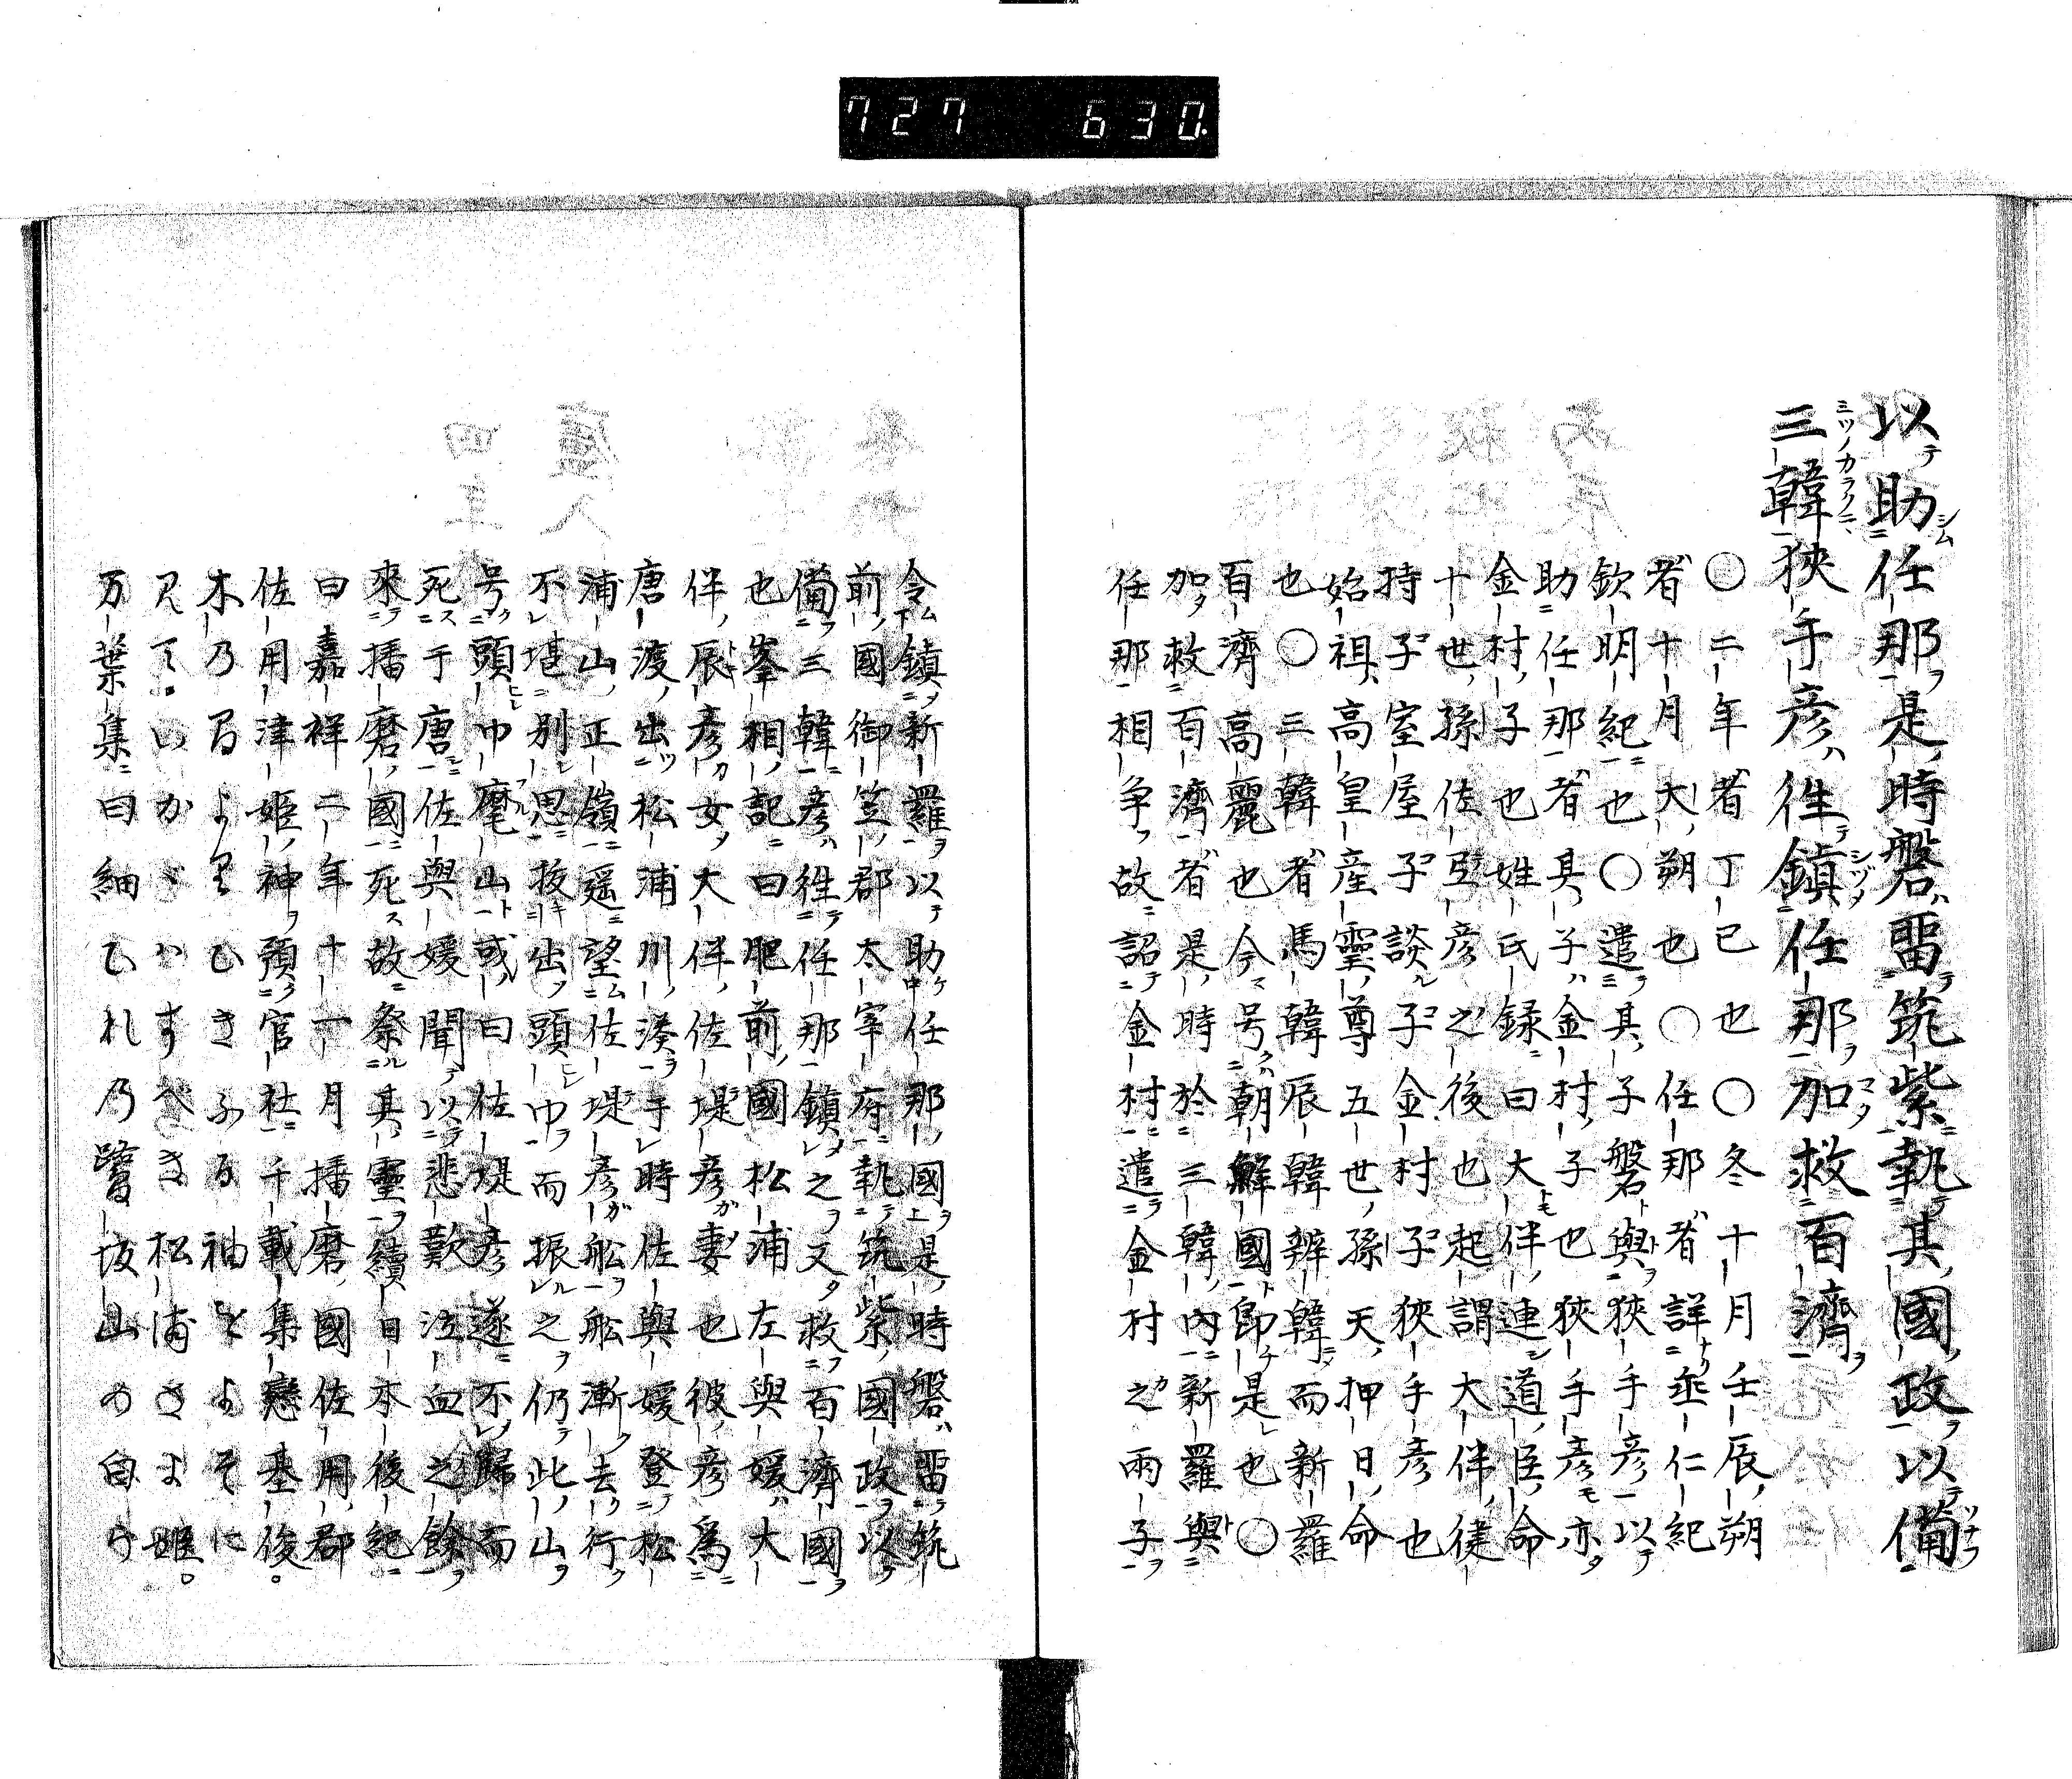 727 630
以助任那是時磐留筑紫執其國政以備
三韓狹手彦徃鎮任那加救百濟
〇二年者丁巳也〇冬十月壬辰朔
者十月大朔也〇任那者詳垂仁紀
欽明紀也〇遣其子磐與狹手彦以
助任那者其子金村子也狹手彦亦
金村子也姓氏録曰大伴連道臣命
十世孫佐弖彦之後也起謂大伴健
持子室屋子談子金村子狹手彦也
始祖高皇産靈尊五世孫天押日命
也〇三韓者馬韓辰韓辨韓而新羅
百濟高麗也今号朝鮮國即是也〇
加救百濟者是時於三韓内新羅與
任那相争故詔金村遣金村之兩子
令鎮新羅以助任那國是時磐留筑
前國御笠郡太宰府執筑紫國政以
備三韓彦徃任那鎮之又救百濟國
也峯相記曰肥前國松浦左與媛大
伴辰彦女大伴佐堤彦妻也彼彦爲
唐渡出松浦川湊于時佐與媛登松
浦山正嶺遥望佐堤彦舩舩漸去行
不堪別思扱出頭巾而振之仍此山
号頭巾麾山或曰佐堤彦遂不歸而
死于唐佐與媛聞以悲歎泣血之餘
來播磨國死故祭其靈續日本後紀
曰嘉祥二年十一月播磨國佐用郡
佐用津姫神預官社千載集戀基俊
木乃るよりひきふる袖をよそに
見ていかゞハすべき松浦さよ姫
万葉集曰細ひれ乃鷺坂山の白